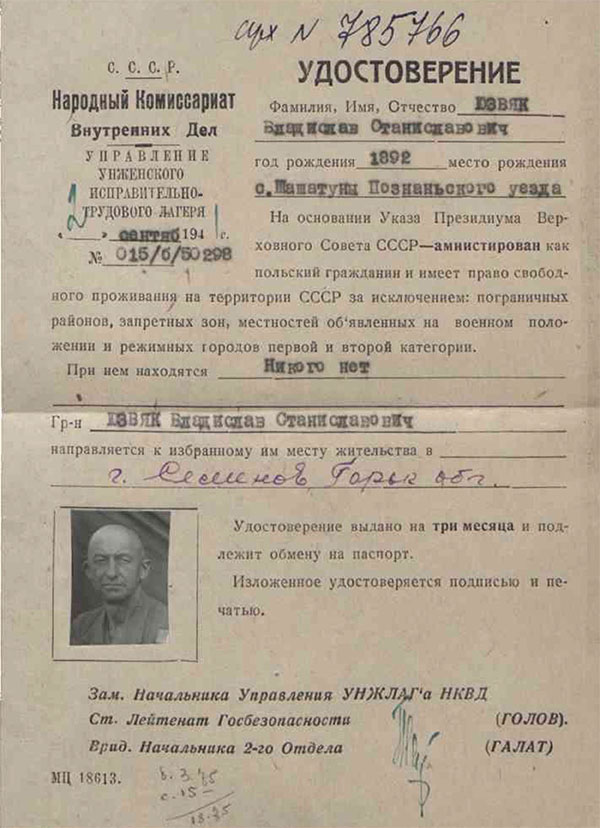 арх N 785766
С. С. С. Р.
Народный Комиссариат
Внутренних Дел
УПРАВЛЕНИЕ
УНЖЕНСКОГО
ИСПРАВИТЕЛЬНО-
ТРУДОВОГО ЛАГЕРЯ
«2» сентяб 1941 г.
№ 015/б/50298
УДОСТОВЕРЕНИЕ
Фамилия, Имя, Отчество ЮЗВЯК
Владислав Станиславович
год рождения 1892 место рождения
с.Шашатуны Познаньского уезда
На основании Указа Президиума Вер-
ховного Совета СССР—амнистирован как
польский гражданин и имеет право свобод-
ного проживания на территории СССР за исключением: пограничных
районов, запретных зон, местностей об'явленных на военном поло-
жении и режимных городов первой и второй категории.
При нем находятся Никого нет
Гр-н ЮЗВЯК Владислав Станиславович
направляется к избранному им месту жительства в
г. Семенов, Горьк обл.
Удостоверение выдано на три месяца и под-
лежит обмену на паспорт.
Изложенное удостоверяется подписью и пе-
чатью.
Зам. Начальника Управления УНЖЛАГ'а НКВД
Ст. Лейтенат Госбезопасности (ГОЛОВ).
Врид. Начальника 2-го Отдела (ГАЛАТ)
МЦ 18613.